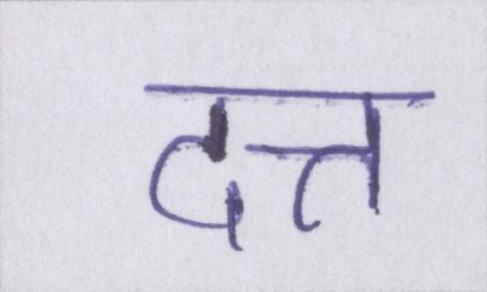 दत्त